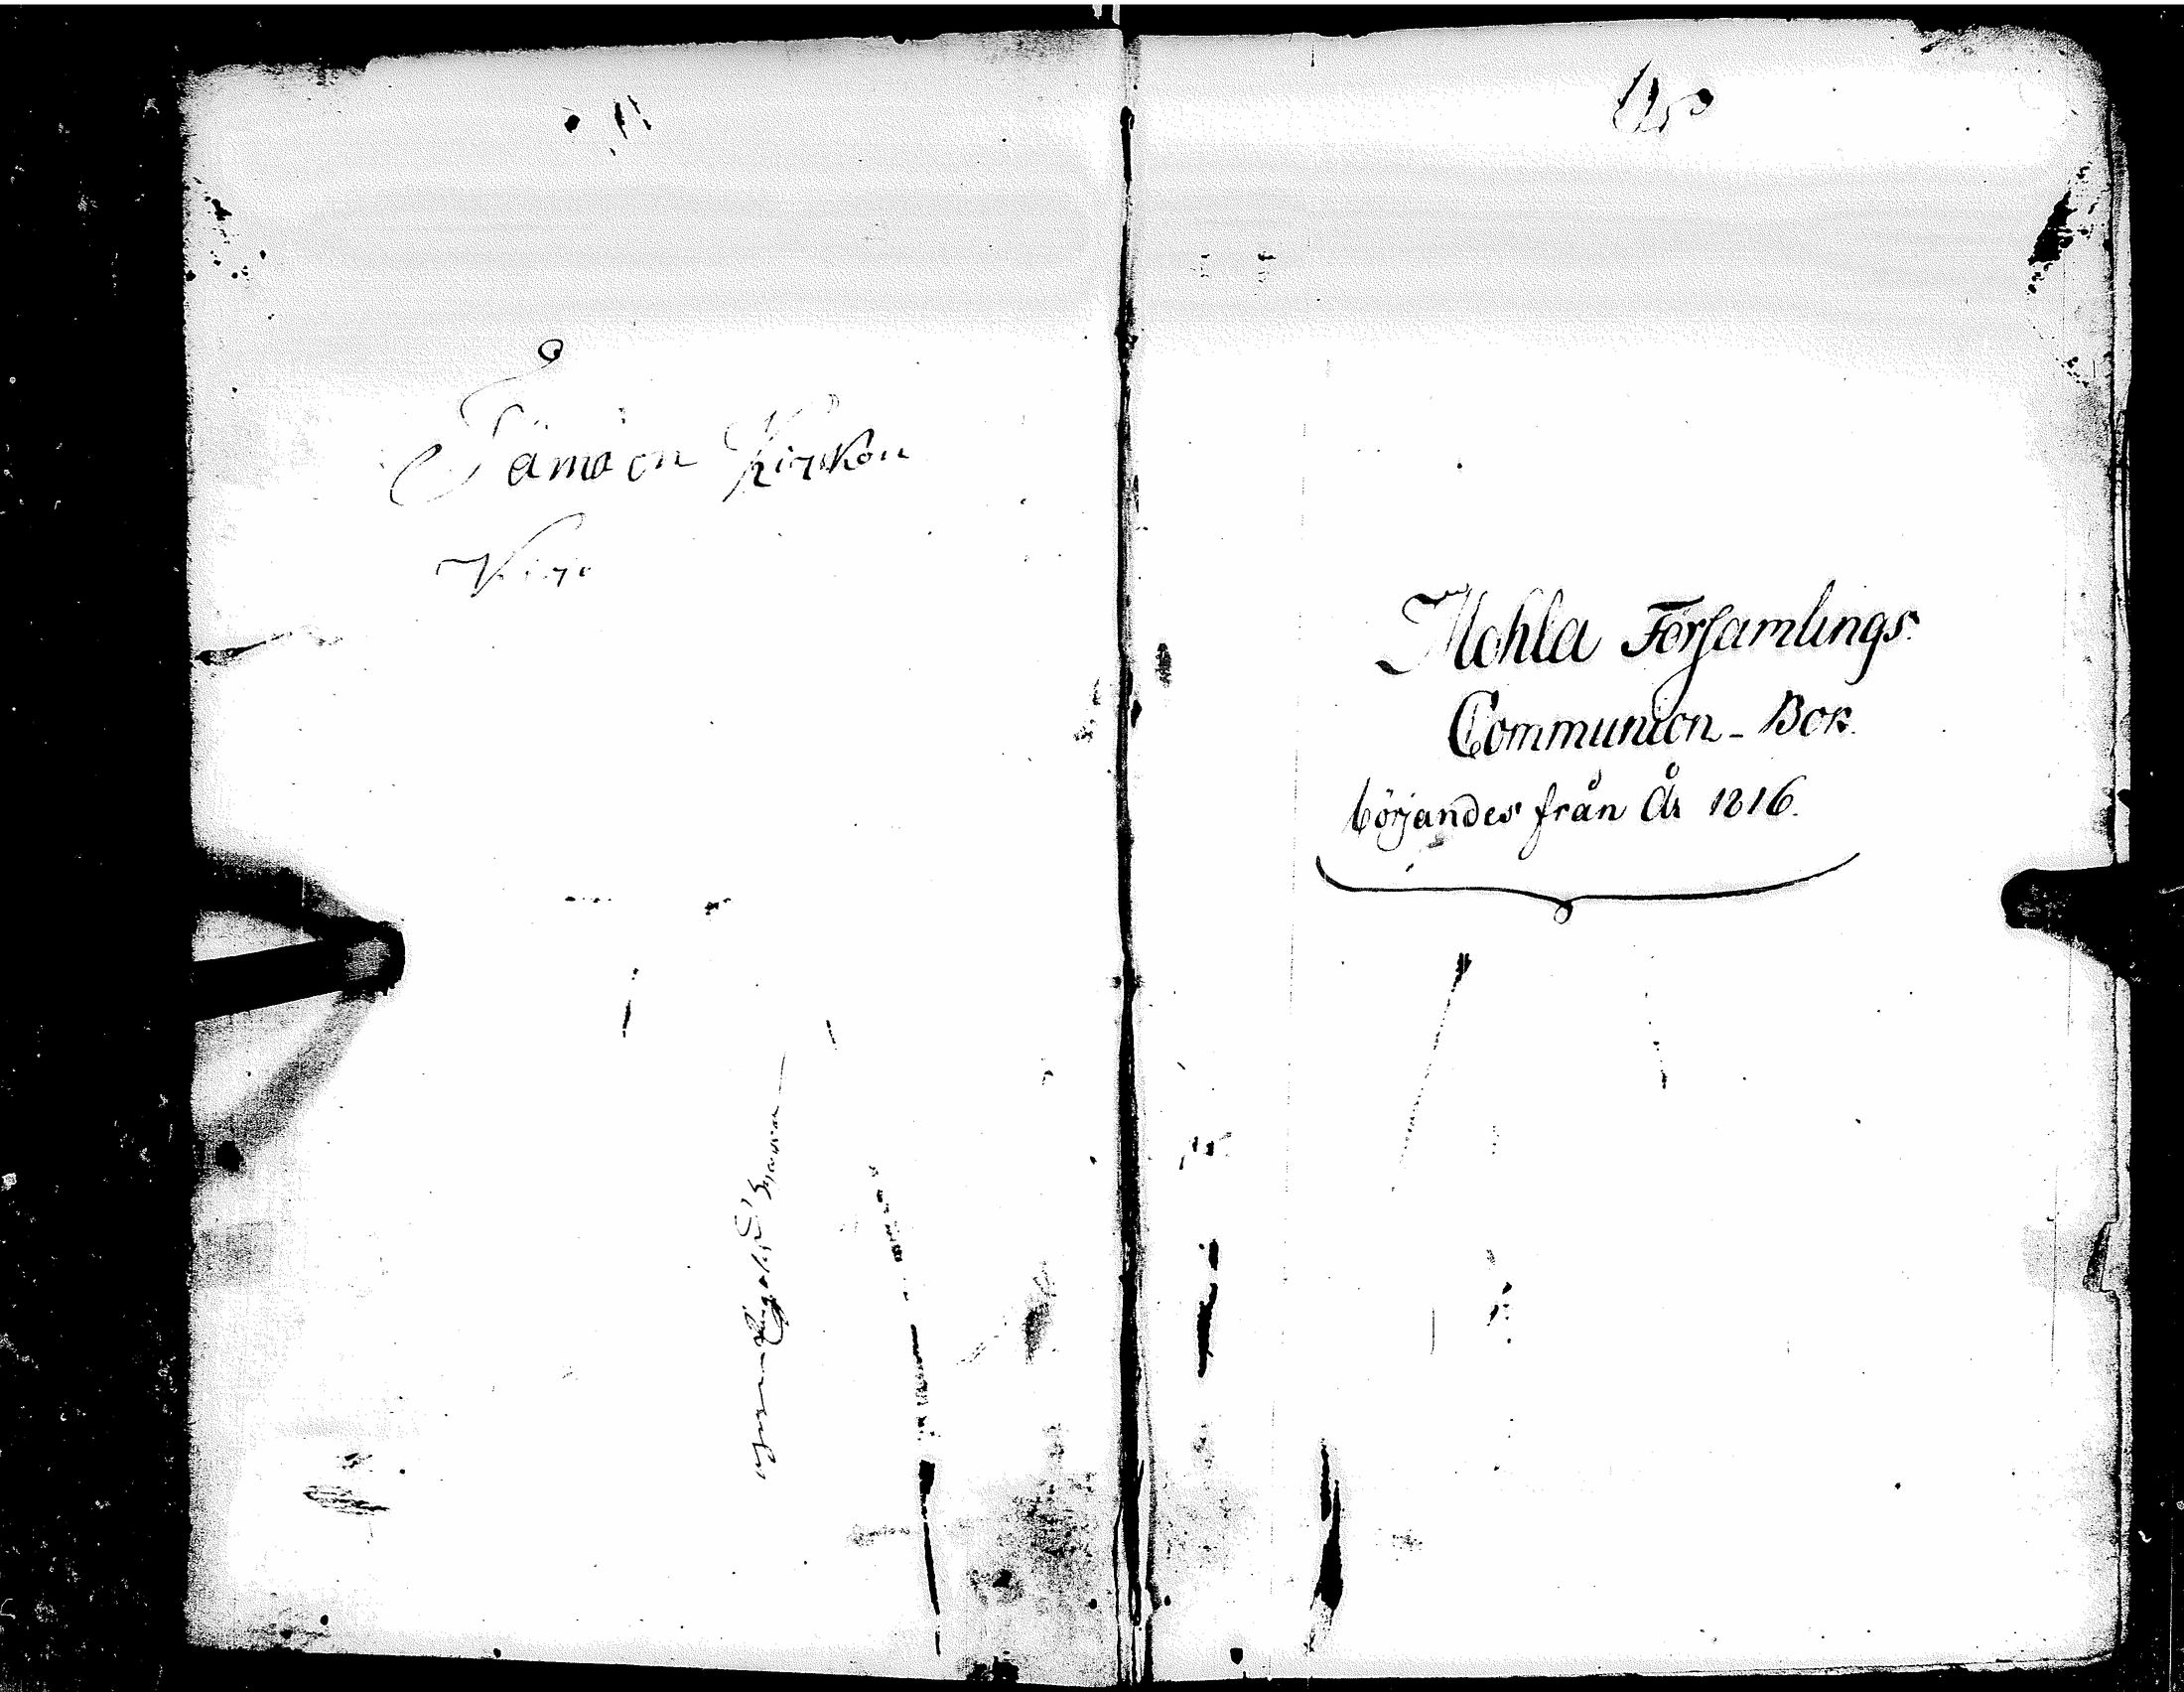 Tämä on Kirkon
Kirja
Mohla Församlings
Communion-Bok
börjandes från År 1816.